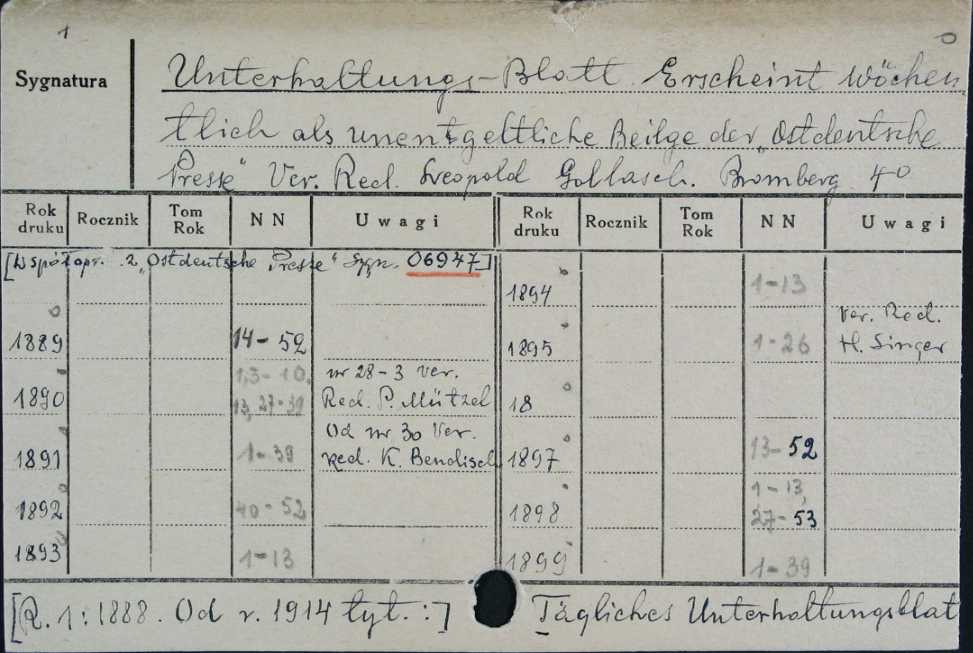 1 0
Sygnatura
Unterhaltungs-Blatt. Erscheint wöchen
tlich als unentgeltliche Beilge der „Ostdeutsche
Presse" Ver. Red. Leopold Gollasch. Bromberg 40
Rok druku Rocznik Tom Rok NN Uwagi Rok druku Rocznik Tom Rok NN Uwagi
[Współopr. z „Ostdeutsche Presse" Sygn. 06947]
1894 1-13
1889 14-52
1895 1-26 Ver. Red. H. Singer
1890 1,3-10, 13, 27-39 nr 28-3 Ver. Red. P. Mützel
18
1891 1-39 Od nr 30 Ver. Red. K. Bendisch
1897 13-52
1892 40-52
1898 1-13, 27-53
1893 1-13
1899 1-39
[R. 1: 1888. Od r. 1914 tyt.:] Tägliches Unterhaltungsblat